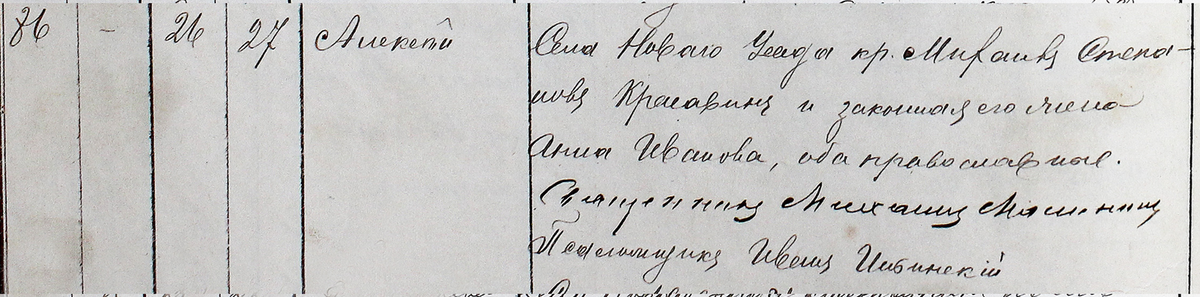 86 - 26 27 Алексѣй Села Новаго Усада кр. Михаилъ Степа-
новъ Красавинъ и законная его жена
Анна Иванова, оба православные.
Священникъ Михаилъ
Псаломщикъ Иванъ